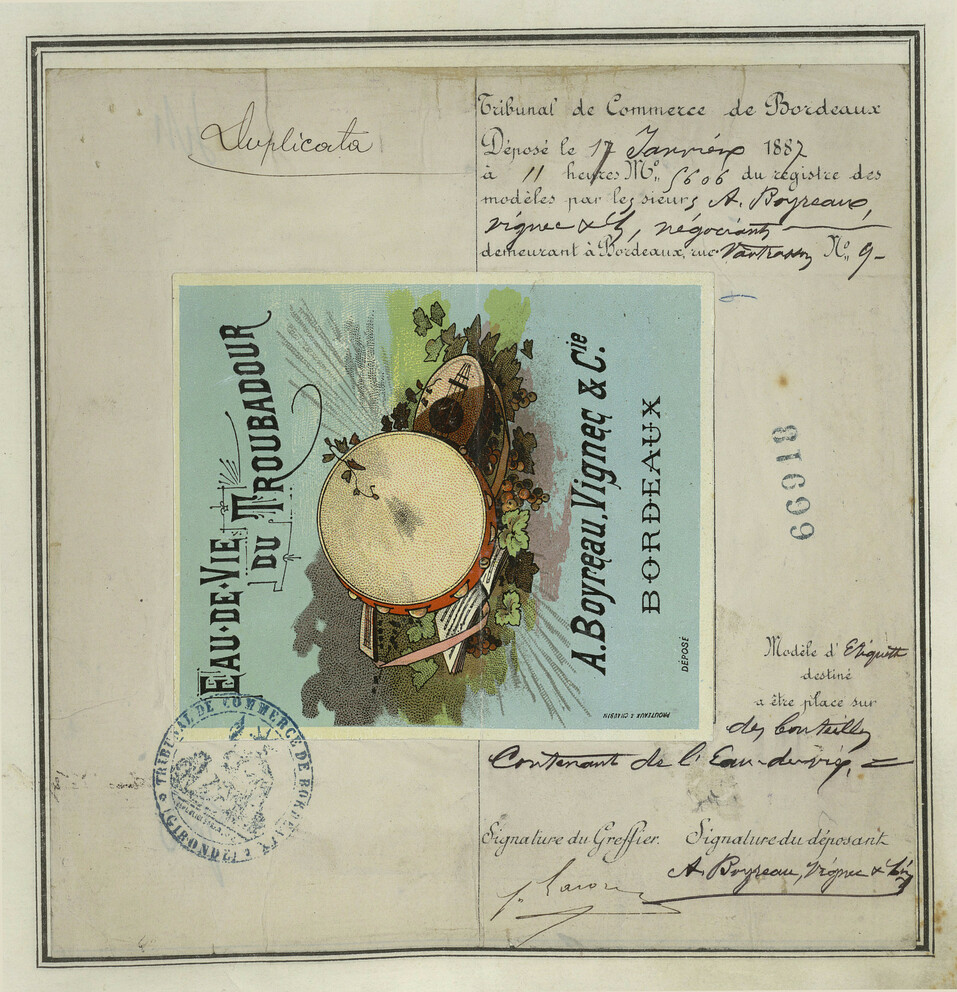 Duplicata
Tribunal de Commerce de Bordeaux
Déposé le 17 Janvier 1887
à 11 heures Nº 5606 du registre des
modèles par les sieurs A. Boyreau,
Vignec & Cie, négociants
demeurant à Bordeaux, rue Nº 9
EAU-DE-VIE
DU TROUBADOUR
A. Boyreau, Vignec & Cie.
BORDEAUX
DÉPOSÉ
PROUTEAUX & CHAUSIN
66918
Modèle d'Etiquette
destiné
a être placé sur
des bouteilles
Contenant de l'Eau-de-vie,
TRIBUNAL DE COMMERCE DE BORDEAUX
(GIRONDE)
Signature du Greffier. Signature du déposant
A. Boyreau, Vignec & Cie